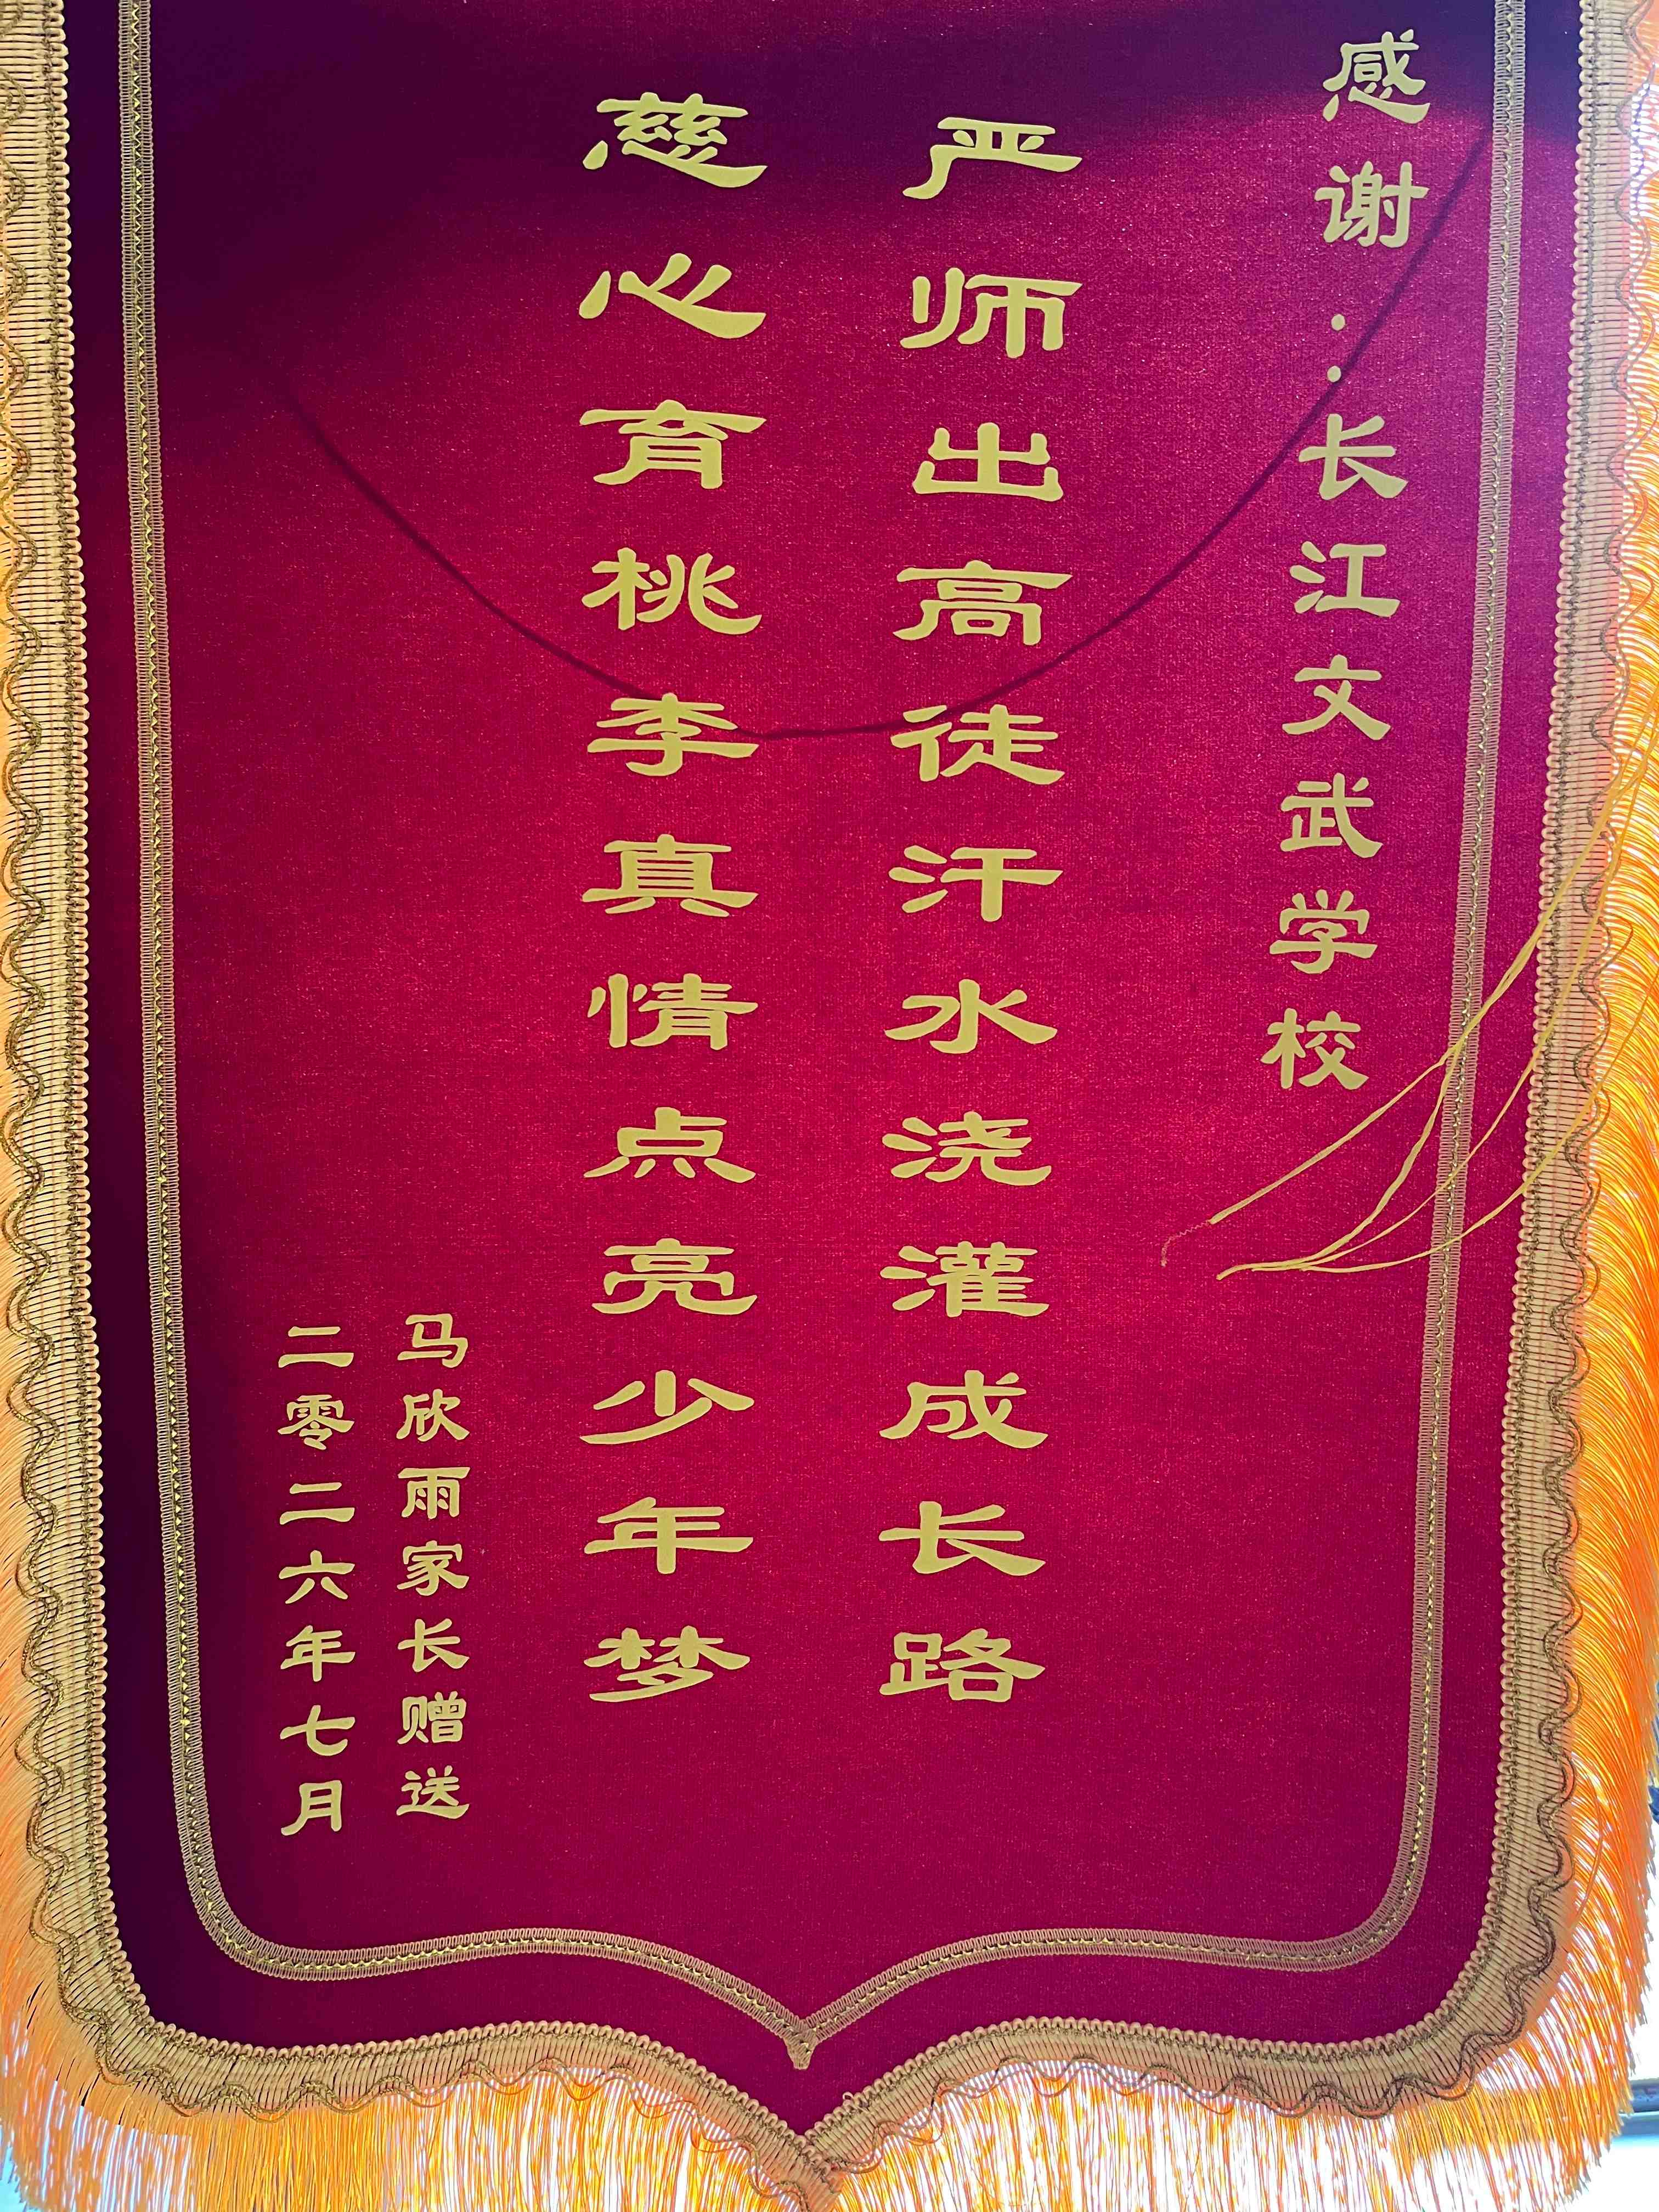 感谢：长江文武学校
严师出高徒汗水浇灌成长路
慈心育桃李真情点亮少年梦
马欣雨家长赠送
二零二六年七月